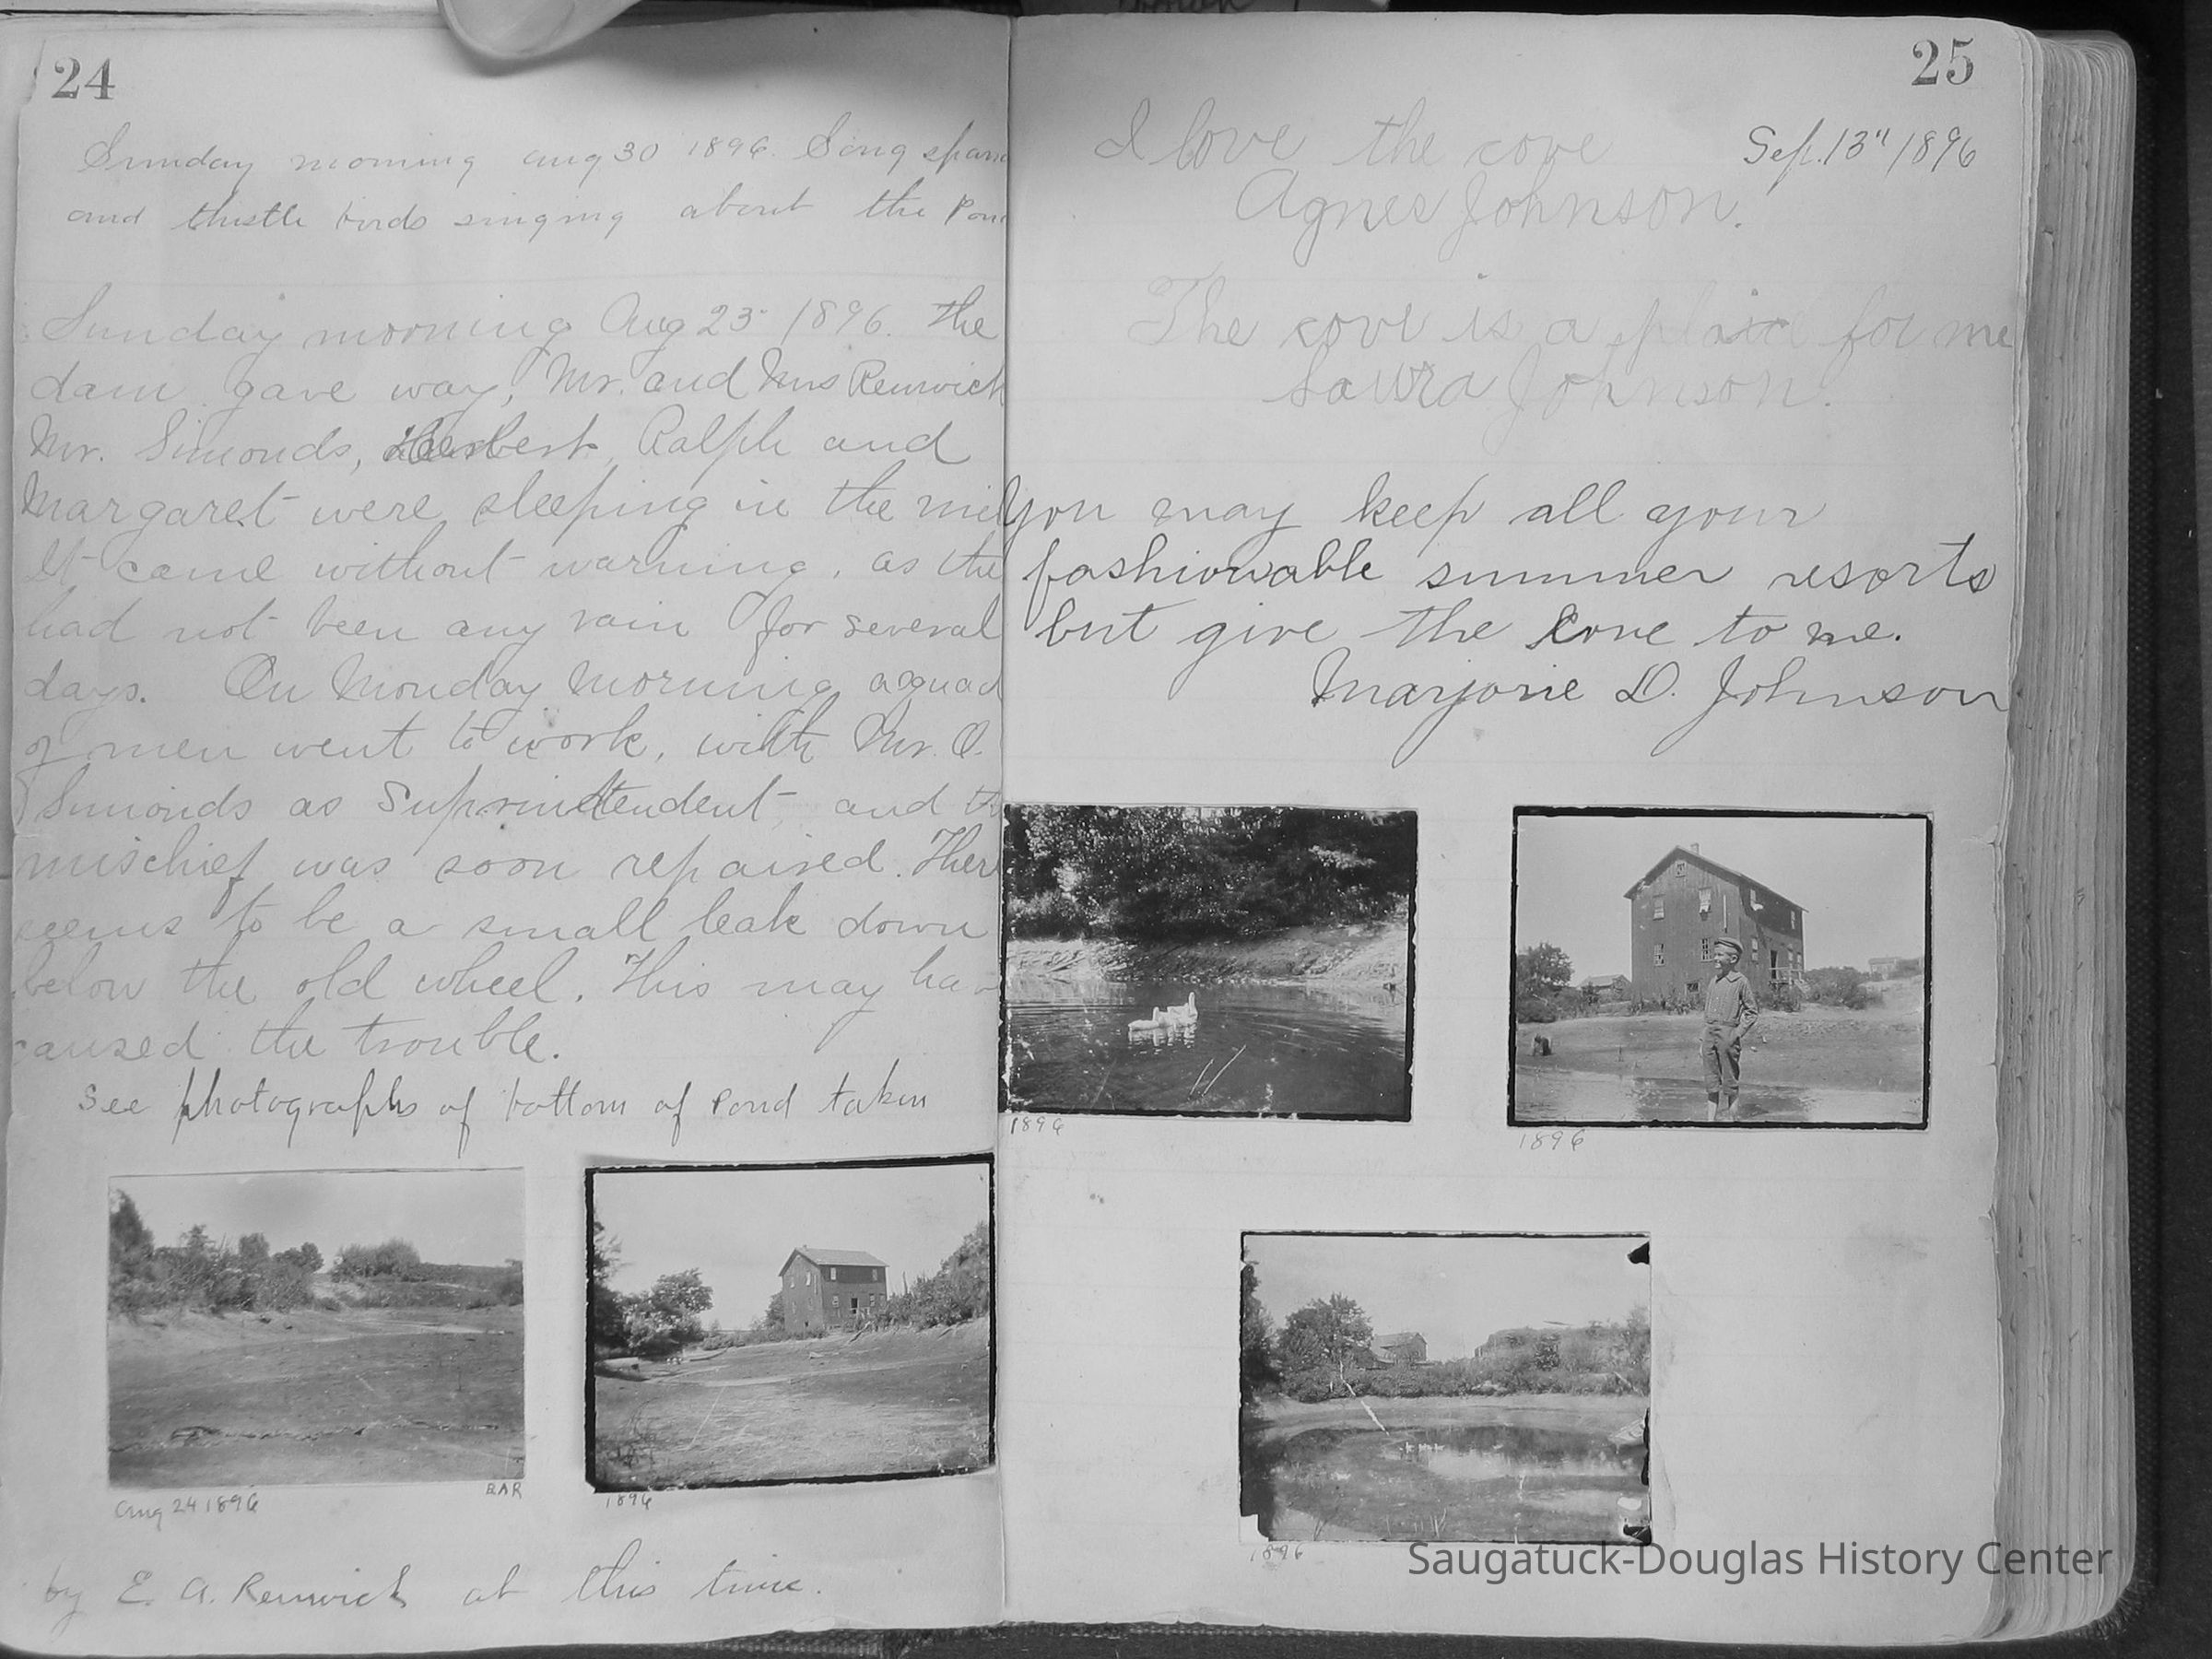 24
Sunday morning aug 30 1896. Song
and thistle birds singing about the
Sunday morning Aug 23 1896. The
dam gave way, Mr. and Mrs Renwick
Mr. Simonds, Herbert, Ralph and
Margaret were sleeping in the
It came without warning, as the
had not been any rain for several
days. On Monday morning a
of men went to work, with Mr. O.
Simonds as and
mischief was soon repaired. There
seems to be a small leak down
below the old wheel. This may
caused the trouble.
see photographs of bottom of Pond taken
Aug 24 1896
EAR
1896
by E. A. Renwick at this time.
25
I love the cove
Sep. 13" 1896
Agnes Johnson.
The cove is a place for me
Laura Johnson.
You may keep all your
fashionable summer resorts
but give the Cove to me.
Marjorie D. Johnson
1896
1896
1896
Saugatuck-Douglas History Center